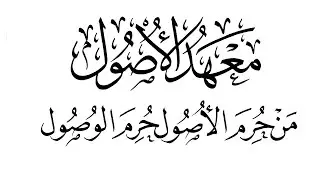 مَعْهَدُ الأُصُول
مَنْ حُرِمَ الأُصُول حُرِمَ الوُصُول